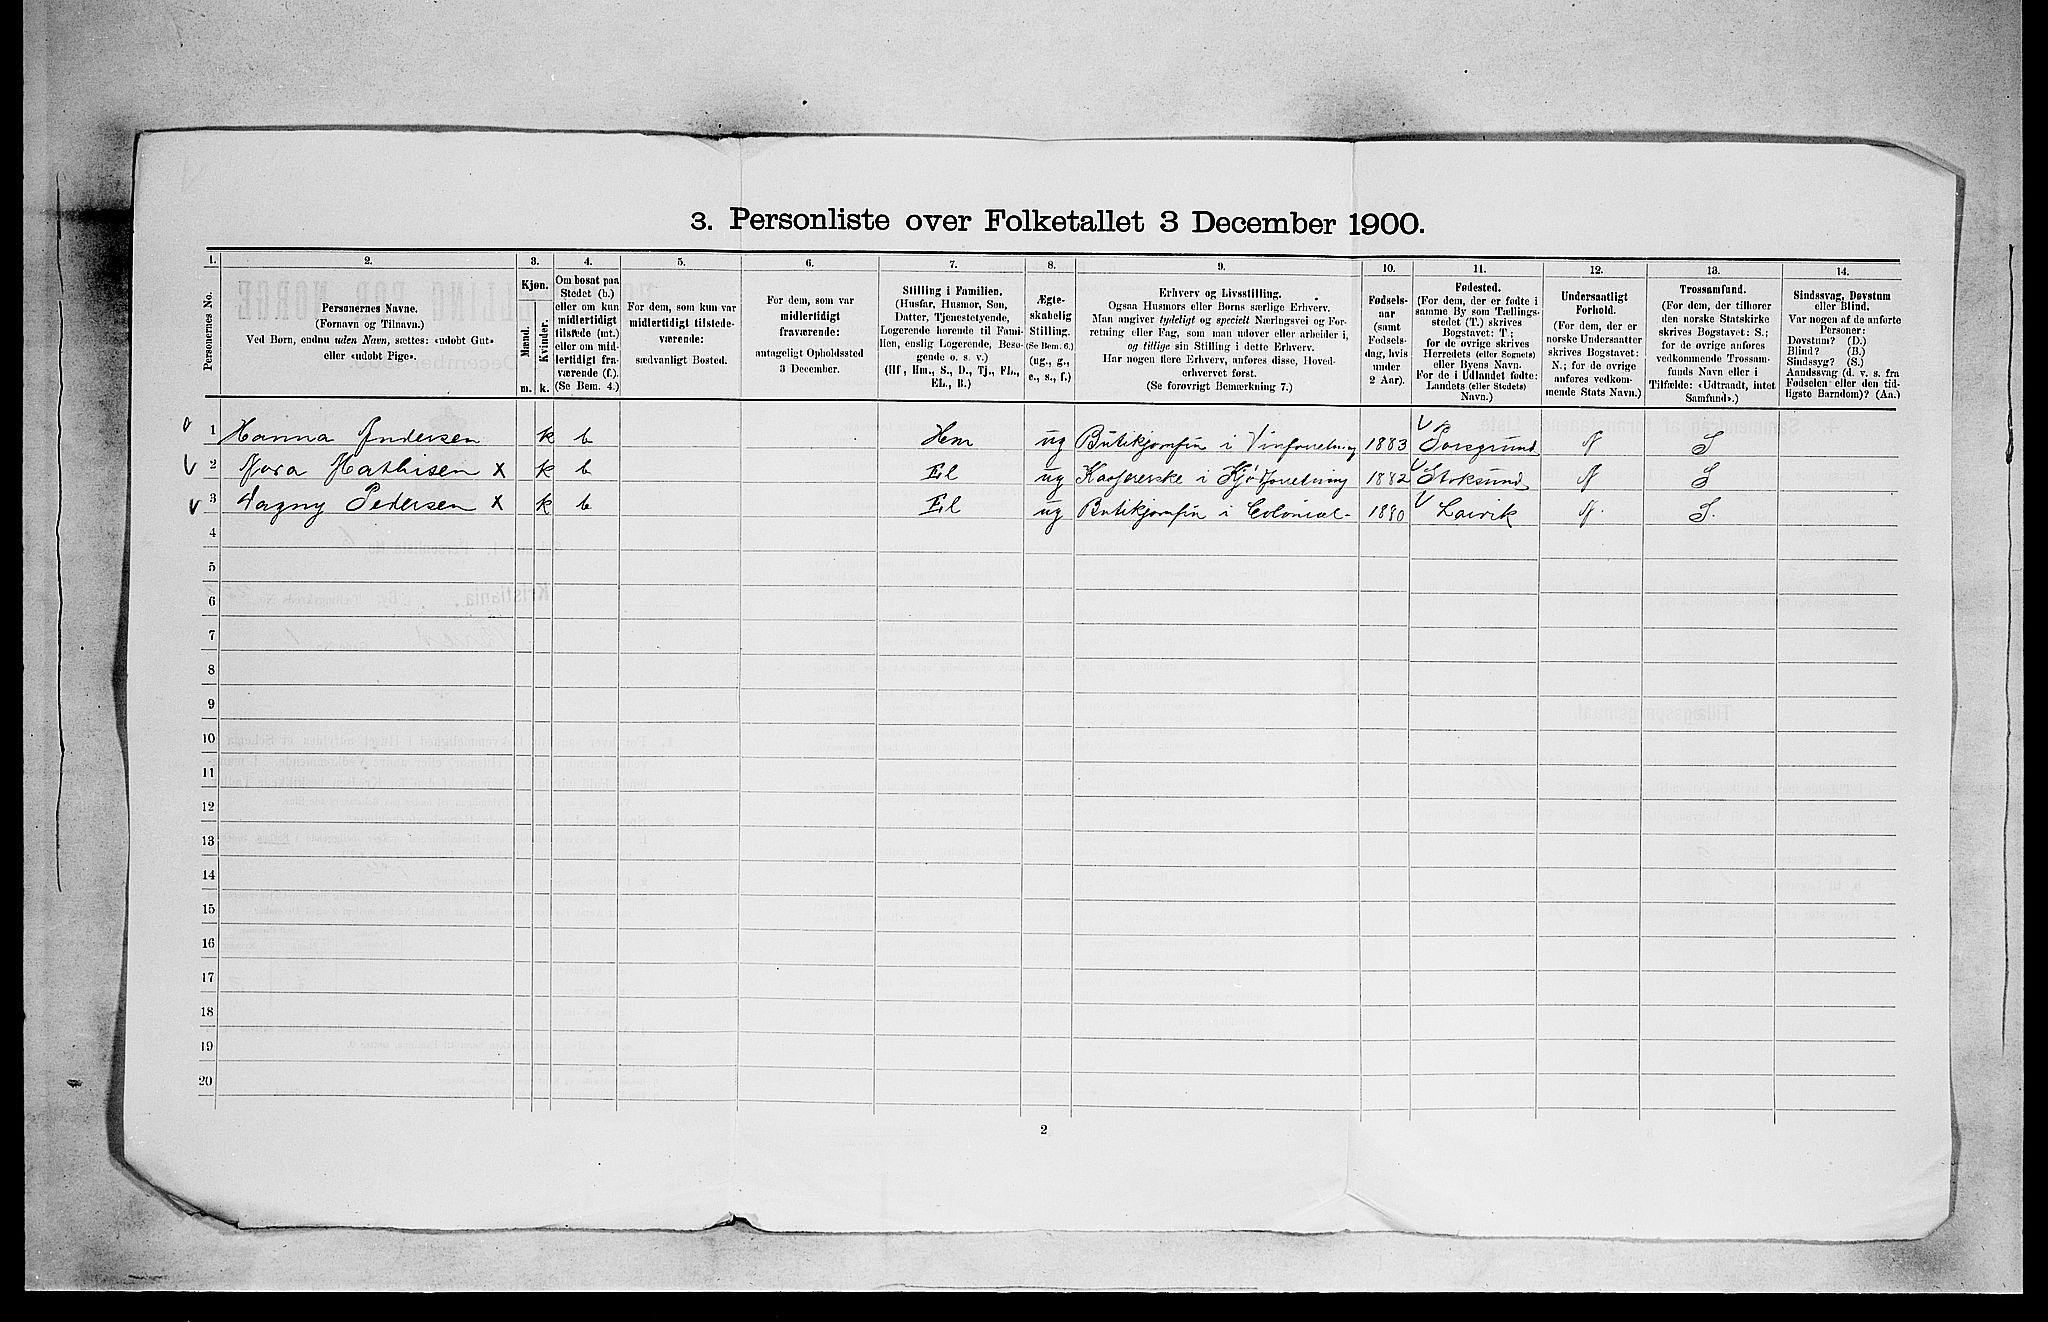 3. Personliste over Folketallet 3 December 1900.
1. 2. 3. 4. 5. 6. 7. 8. 9. 10. 11. 12. 13. 14.
Personernes No.
Personernes Navne.
(Fornavn og Tilnavn.)
Ved Børn, endnu uden Navn, sættes: «udøbt Gut»
eller «udøbt Pige».
Kjøn.
Mænd.
Kvinder.
m. k.
Om bosat paa
Stedet (b.)
eller om kun
midlertidigt
tilstede (mt.)
eller om mid-
lertidigt fra-
værende (f.).
(Se Bem. 4.)
For dem, som kun var
midlertidigt tilstede-
værende:
sædvanligt Bosted.
For dem, som var
midlertidigt
fraværende:
antageligt Opholdssted
3 December.
Stilling i Familien.
(Husfar, Husmor, Søn,
Datter, Tjenestetyende,
Logerende hørende til Fami-
lien, enslig Logerende, Besø-
gende o. s. v.)
(Hf, Hm., S., D., Tj., FL.,
EL., B.)
Ægte-
skabelig
Stilling.
(Se Bem. 6.)
(ug., g.,
e., s., f.)
Erhverv og Livsstilling.
Ogsaa Husmors eller Børns særlige Erhverv.
Man angiver tydeligt og specielt Næringsvei og For-
retning eller Fag, som man udøver eller arbeider i,
og tillige sin Stilling i dette Erhverv.
Har nogen flere Erhverv, anføres disse, Hoved-
erhvervet først.
(Se forøvrigt Bemærkning 7.)
Fødsels-
aar
(samt
Fødsels-
dag, hvis
under
2 Aar).
Fødested.
(For dem, der er fødte i
samme By som Tællings-
stedet (T.) skrives
Bogstavet: T.;
for de øvrige skrives
Herredets (eller Sognets)
eller Byens Navn.
For de i Udlandet fødte:
Landets (eller Stedets)
Navn.)
Undersaatligt
Forhold.
(For dem, der er
norske Undersaatter
skrives Bogstavet:
N.; for de øvrige
anføres vedkom-
mende Stats Navn.)
Trossamfund.
(For dem, der tilhører
den norske Statskirke
skrives Bogstavet: S.;
for de øvrige anføres
vedkommende Trossam-
funds Navn eller i
Tilfælde: «Udtraadt, intet
Samfund».)
Sindssvag, Døvstum
eller Blind.
Var nogen af de anførte
Personer:
Døvstum? (D.)
Blind? (B.)
Sindssyg? (S.)
Aandssvag (d. v. s. fra
Fødselen eller den tid-
ligste Barndom)? (Aa.)
1 Hanna Andersen k b Hm ug Butikjomfru i Vinforretning 1883 Porsgrund N S
2 Nora Mathisen x k b El ug Kassererske i Kjødforretning 1882 Stoksund N S
3 Dagny Pedersen x k b El ug Butikjomfru i Colonial- 1880 Larvik N. S.
4
5
6
7
8
9
10
11
12
13
14
15
16
17
18
19
20
2